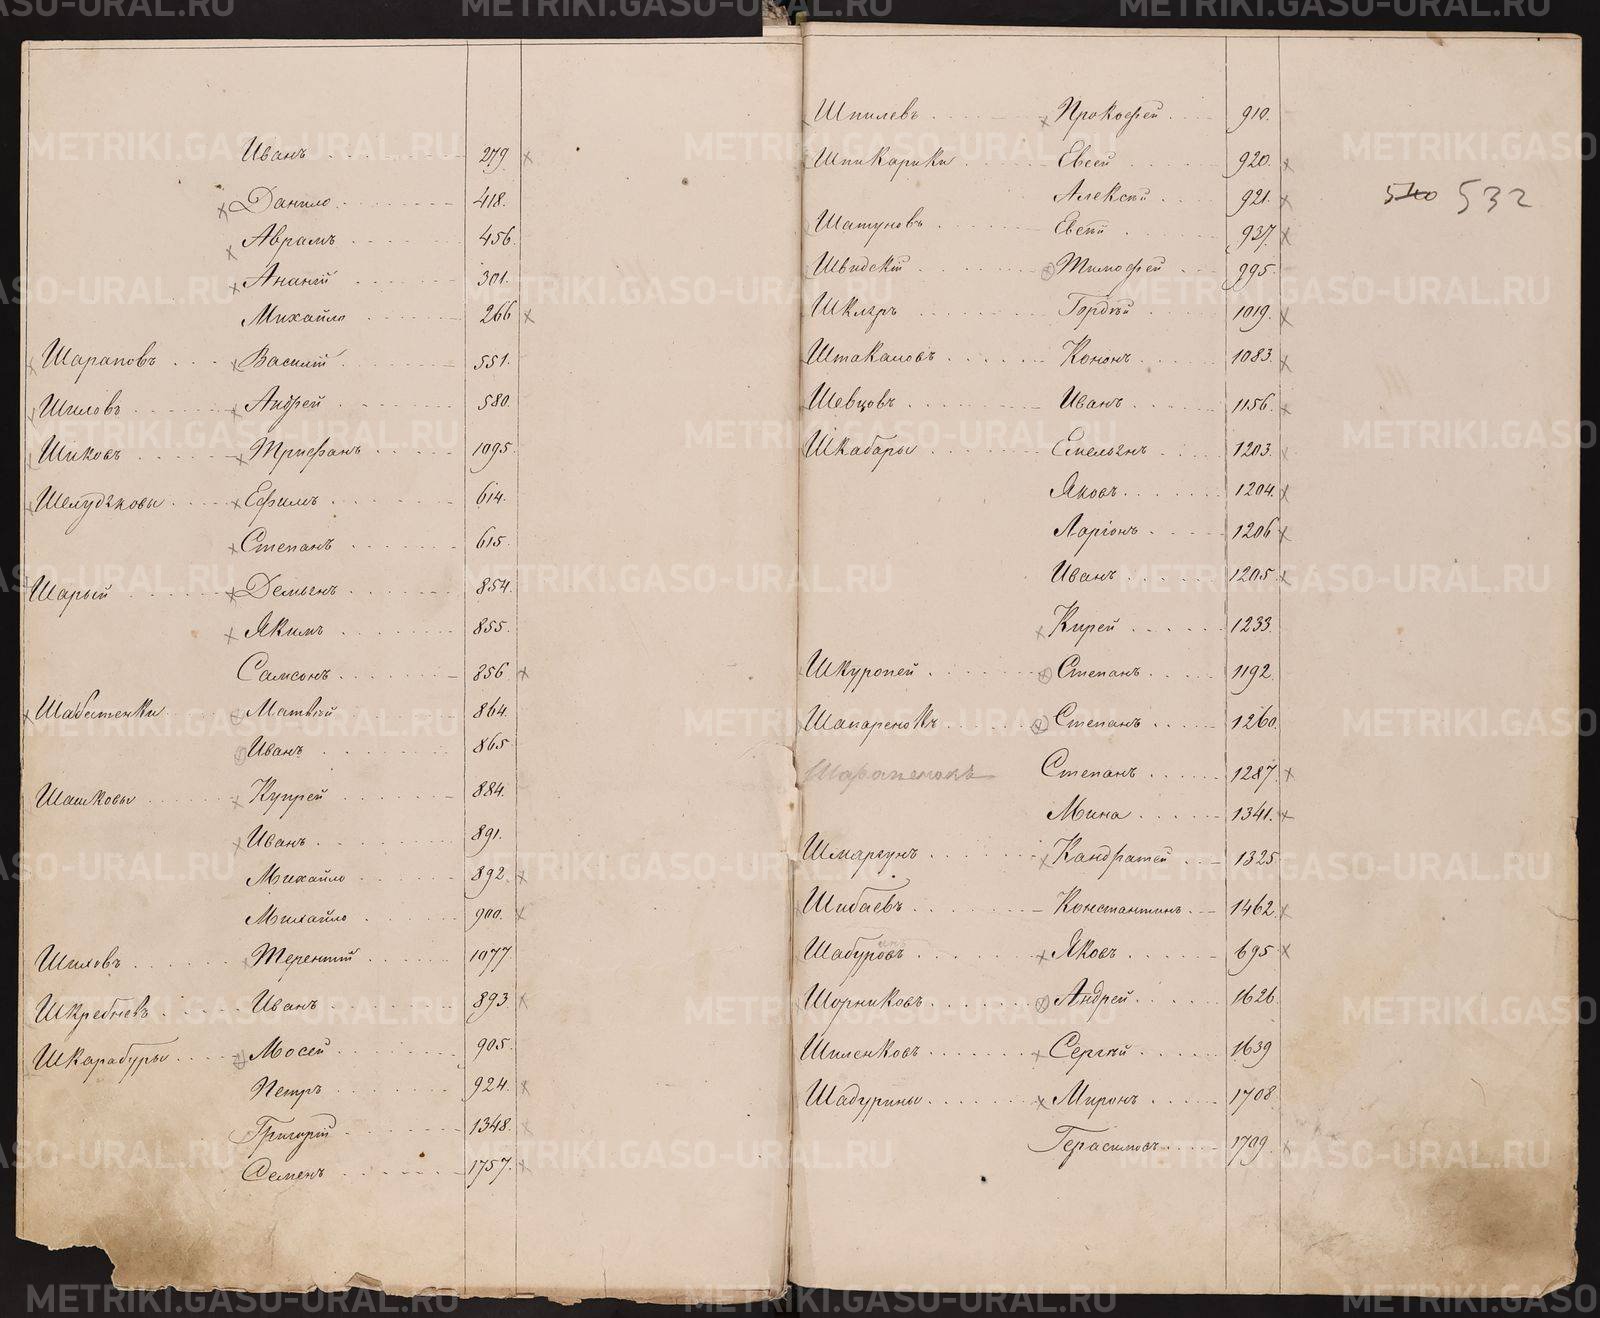 Иванъ 279
Данило 418.
Аврамъ 456
Ананій 301.
Михайло 266
Шараповъ Василій 551.
Шиловъ Андрей 580.
Шиковъ Трифанъ 1095
Шелудьковы Ефимъ 614.
Степанъ 615.
Шарый Демьянъ 854.
Якимъ 855.
Самсонъ 856
Шабетенки Матвѣй 864
Иванъ 865
Шашковы Купрей 884.
Иванъ 891.
Михайло 892.
Михайло 900.
Шиховъ Терентий 1077
Шкребневъ Иванъ 893
Шкарабуры Мосей 905.
Петръ 924.
Григорій 1348.
Семенъ 1757.
Шпилевъ Прокофей 910.
Шпикарики Евсей 920.
Алексѣй 921.
Шатуновъ Евсѣй 937.
Швидскій Тимофей 995.
Шкляръ Гордѣй 1019.
Штакамовъ Кононъ 1083
Шевцовъ Иванъ 1156.
Шкабары Емельянъ 1203.
Яковъ 1204.
Ларіонъ 1206
Иванъ 1205
Кирей 1233.
Шкуропей Степанъ 1192
Шапаренокъ Степанъ 1260.
Шарапенокъ Степанъ 1287
Мина 1341.
Шмаргунъ Кандратей 1325
Шибаевъ Константинъ 1462.
Шабуровъ Яковъ 695
Шорниковъ Андрей 1626
Шиленковъ Сергѣй 1639
Шадурины Миронъ 1708
Герасимовъ 1709.
540 532
METRIKI.GASO-URAL.RU